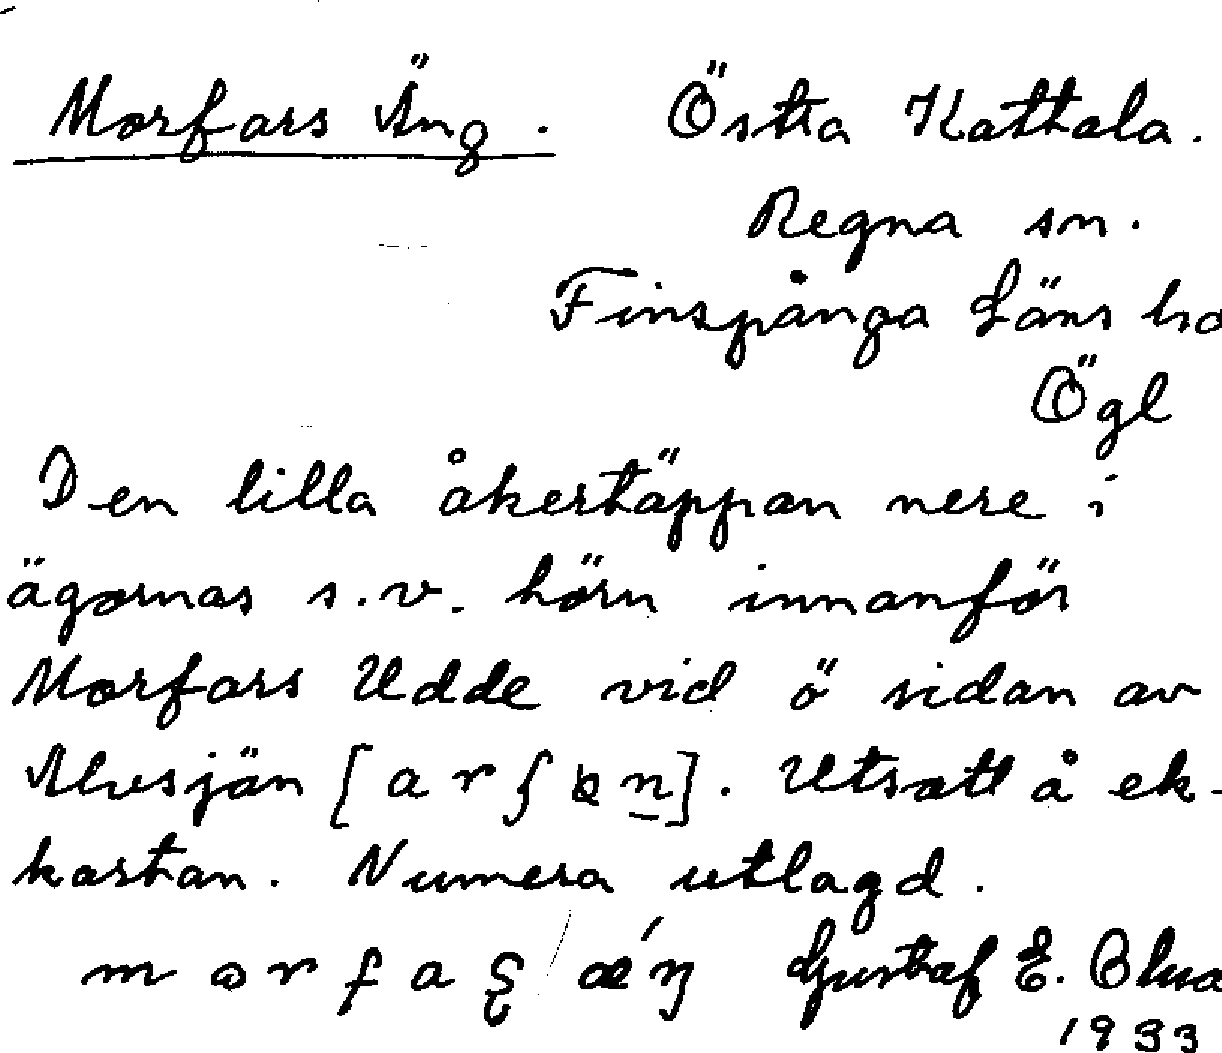 Morfars Äng. Östra Kattala.
Regna sn.
Finspånga Läns
Ögl
Den lilla åkertäppan nere i
ägornas s.v. hörn innanför
Morfars Udde vid ö sidan av
Utsatt å ek-
kartan. Numera utlagd.
Gustaf E.
1933